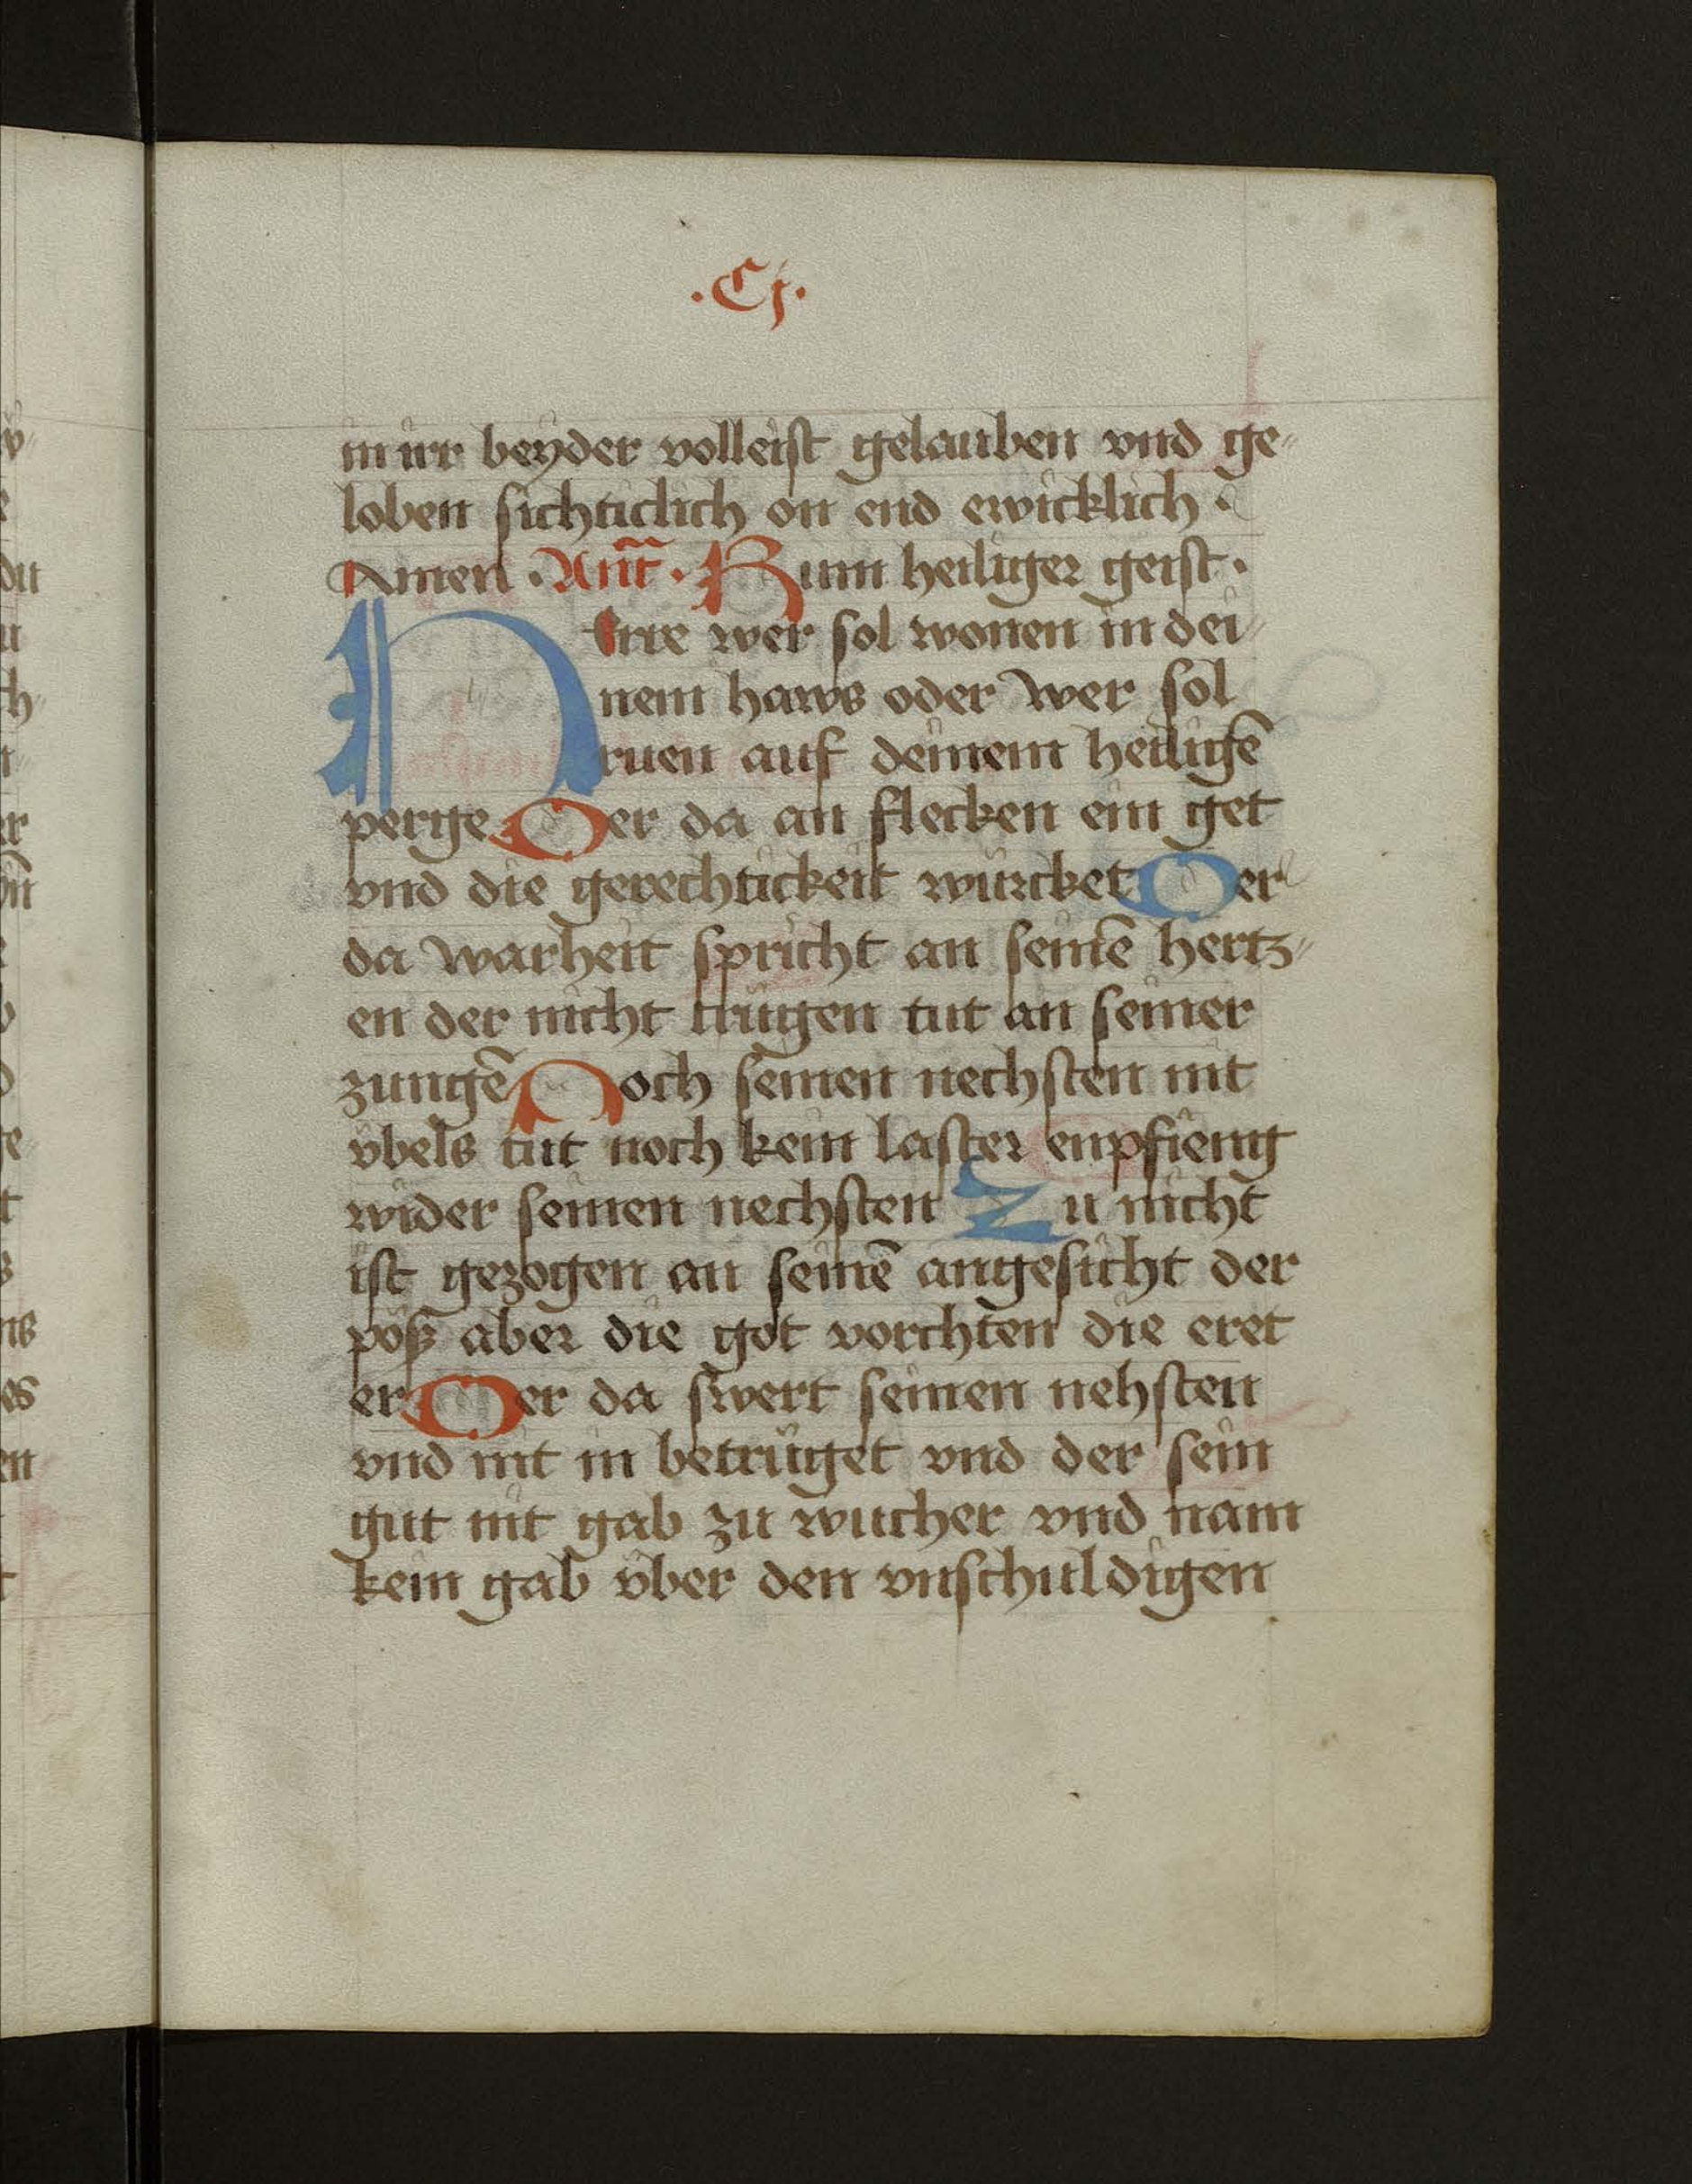 .Cj.
in irr beyder volleist gelauben vnd ge-
loben sichticlich on end ewicklich.
Amen. Ant̃. Kum heiliger geist.
Herre wer sol wonen in dei-
nem haws oder wer sol
ruen auf deinem heiligē
perge Der da an flecken ein get
vnd die gerechtickeit würcket Der
da warheit spricht an seinē hertz-
en der nicht trügen tut an seiner
zungē Noch seinen nechsten nit
vbels tut noch kein laster enpfieng
wider seinen nechsten Zu nicht
ist gezogen an seinē angesicht der
pöß aber die got vorchten die eret
er Der da swert seinen nehsten
vnd nit in betrüget vnd der sein
gut nit gab zu wucher vnd nam
kein gab vber den vnschuldigen